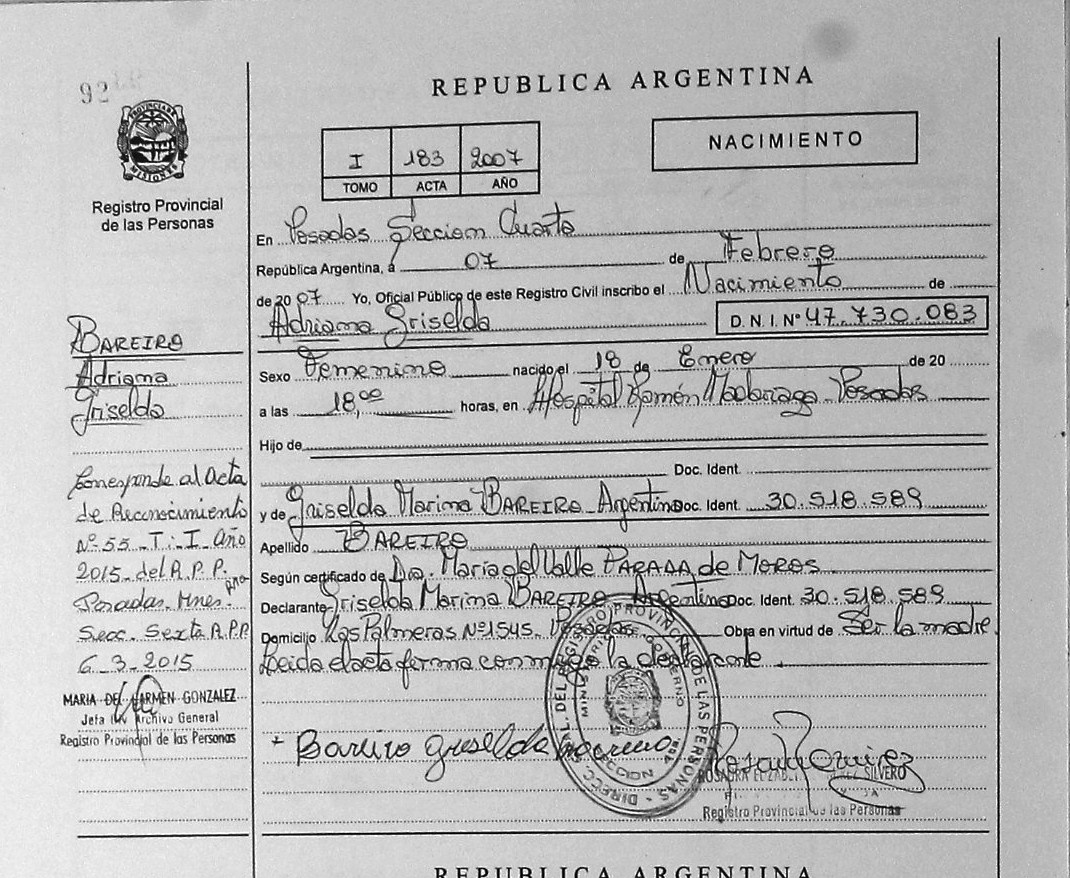 92
REPUBLICA ARGENTINA
I 183 2007
TOMO ACTA AÑO
NACIMIENTO
PROVINCIA DE MISIONES
Registro Provincial
de las Personas
En Posadas Seccion Cuarta
República Argentina, a 07 de Febrero
de 20 07 Yo, Oficial Público de este Registro Civil inscribo el Nacimiento de
Adriana Griselda D.N.I. Nº 47.730.083
Sexo Femenino nacido el 18 de Enero de 20
a las 18,00 horas, en Hospital Ramón Madariaga Posadas
Hijo de
Doc. Ident.
y de Griselda Marina BAREIRO Argentina Doc. Ident. 30.518.589
Apellido BAREIRO
Según certificado de Dra. Maria del Valle PARADA de MOROS
Declarante Griselda Marina BAREIRO Argentina Doc. Ident. 30.518.589
Domicilio Las Palmeras Nº 1545 Posadas Obra en virtud de Ser la madre
Leida el acta firma conmigo la declarante
BAREIRO
Adriana
Griselda
Corresponde al Acta
de Reconocimiento
Nº 55 T: I Año
2015 del R.P.P.
Posadas Mnes.
Secc. Sexta R.P.P
6-3-2015
MARIA DEL CARMEN GONZALEZ
Jefa Archivo General
Registro Provincial de las Personas
+ Bareiro Griselda
DIRECC. CIVIL. DEL REGISTRO PROVINCIAL DE LAS PERSONAS
Rosaura Ramirez
SILVERO
Registro Provincial de las Personas
REPUBLICA ARGENTINA